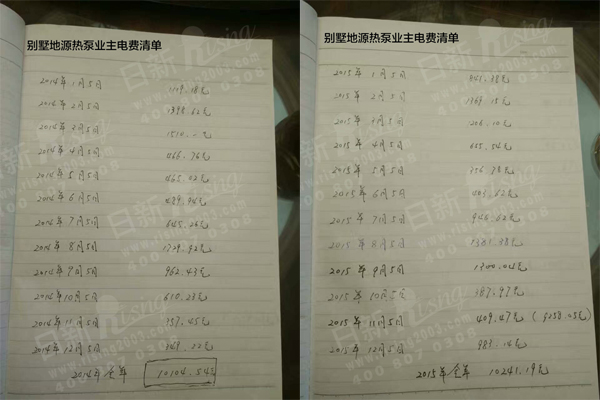 别墅地源热泵业主电费清单
2014年1月5日
2014年2月5日 1398.62元
2014年3月5日
2014年4月5日 466.76元
2014年5月5日 465.02元
2014年6月5日
2014年7月5日 645.26元
2014年8月5日 1729.42元
2014年9月5日 962.43元
2014年10月5日 610.23元
2014年11月5日 357.45元
2014年12月5日
2014年全年 10104.54元
别墅地源热泵业主电费清单
2015年1月5日
2015年2月5日 1369.15元
2015年3月5日 206.10元
2015年4月5日 655.54元
2015年5月5日
2015年6月5日
2015年7月5日 946.62元
2015年8月5日 1381.38元
2015年9月5日 1300.04元
2015年10月5日
2015年11月5日 409.47元
2015年12月5日 983.14元
2015年全年 10241.19元
日新
400 0308